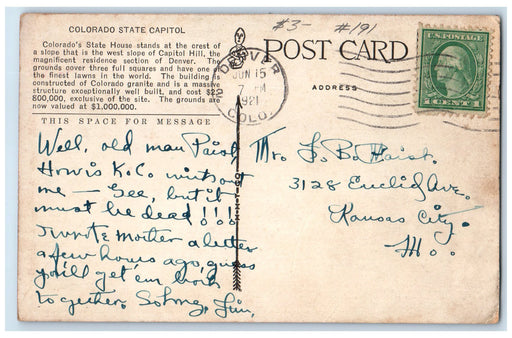 COLORADO STATE CAPITOL
Colorado's State House stands at the crest of
a slope that is the west slope of Capitol Hill, the
magnificent residence section of Denver. The
grounds cover three full squares and have one of
the finest lawns in the world. The building is
constructed of Colorado granite and is a massive
structure exceptionally well built, and cost $2,-
800,000, exclusive of the site. The grounds are
now valued at $1,000,000.
THIS SPACE FOR MESSAGE
#3- #191
POST CARD
ADDRESS
DENVER
JUN 15
7 PM
1921
COLO.
U.S. POSTAGE
1 CENT 1
Well, old man
How is K.C. without
me — Gee, but it
must be dead!!!
I wrote mother a letter
a few hours ago, guess
you'll get 'em both
together. So long, Jim.
Mr. L. B. Haist.
3128 Euclid Ave.
Kansas City.
Mo.